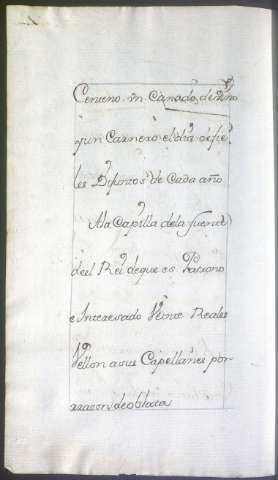 Centeno. un Cañado, de vino
y un Carnero el dia de fie,
les Difuntos de Cada año
A la Capilla de la fuente
del Rei de que es Patrono
e Interesado Veinte Reales
Vellon a sus Capellanes por
razon de oblata